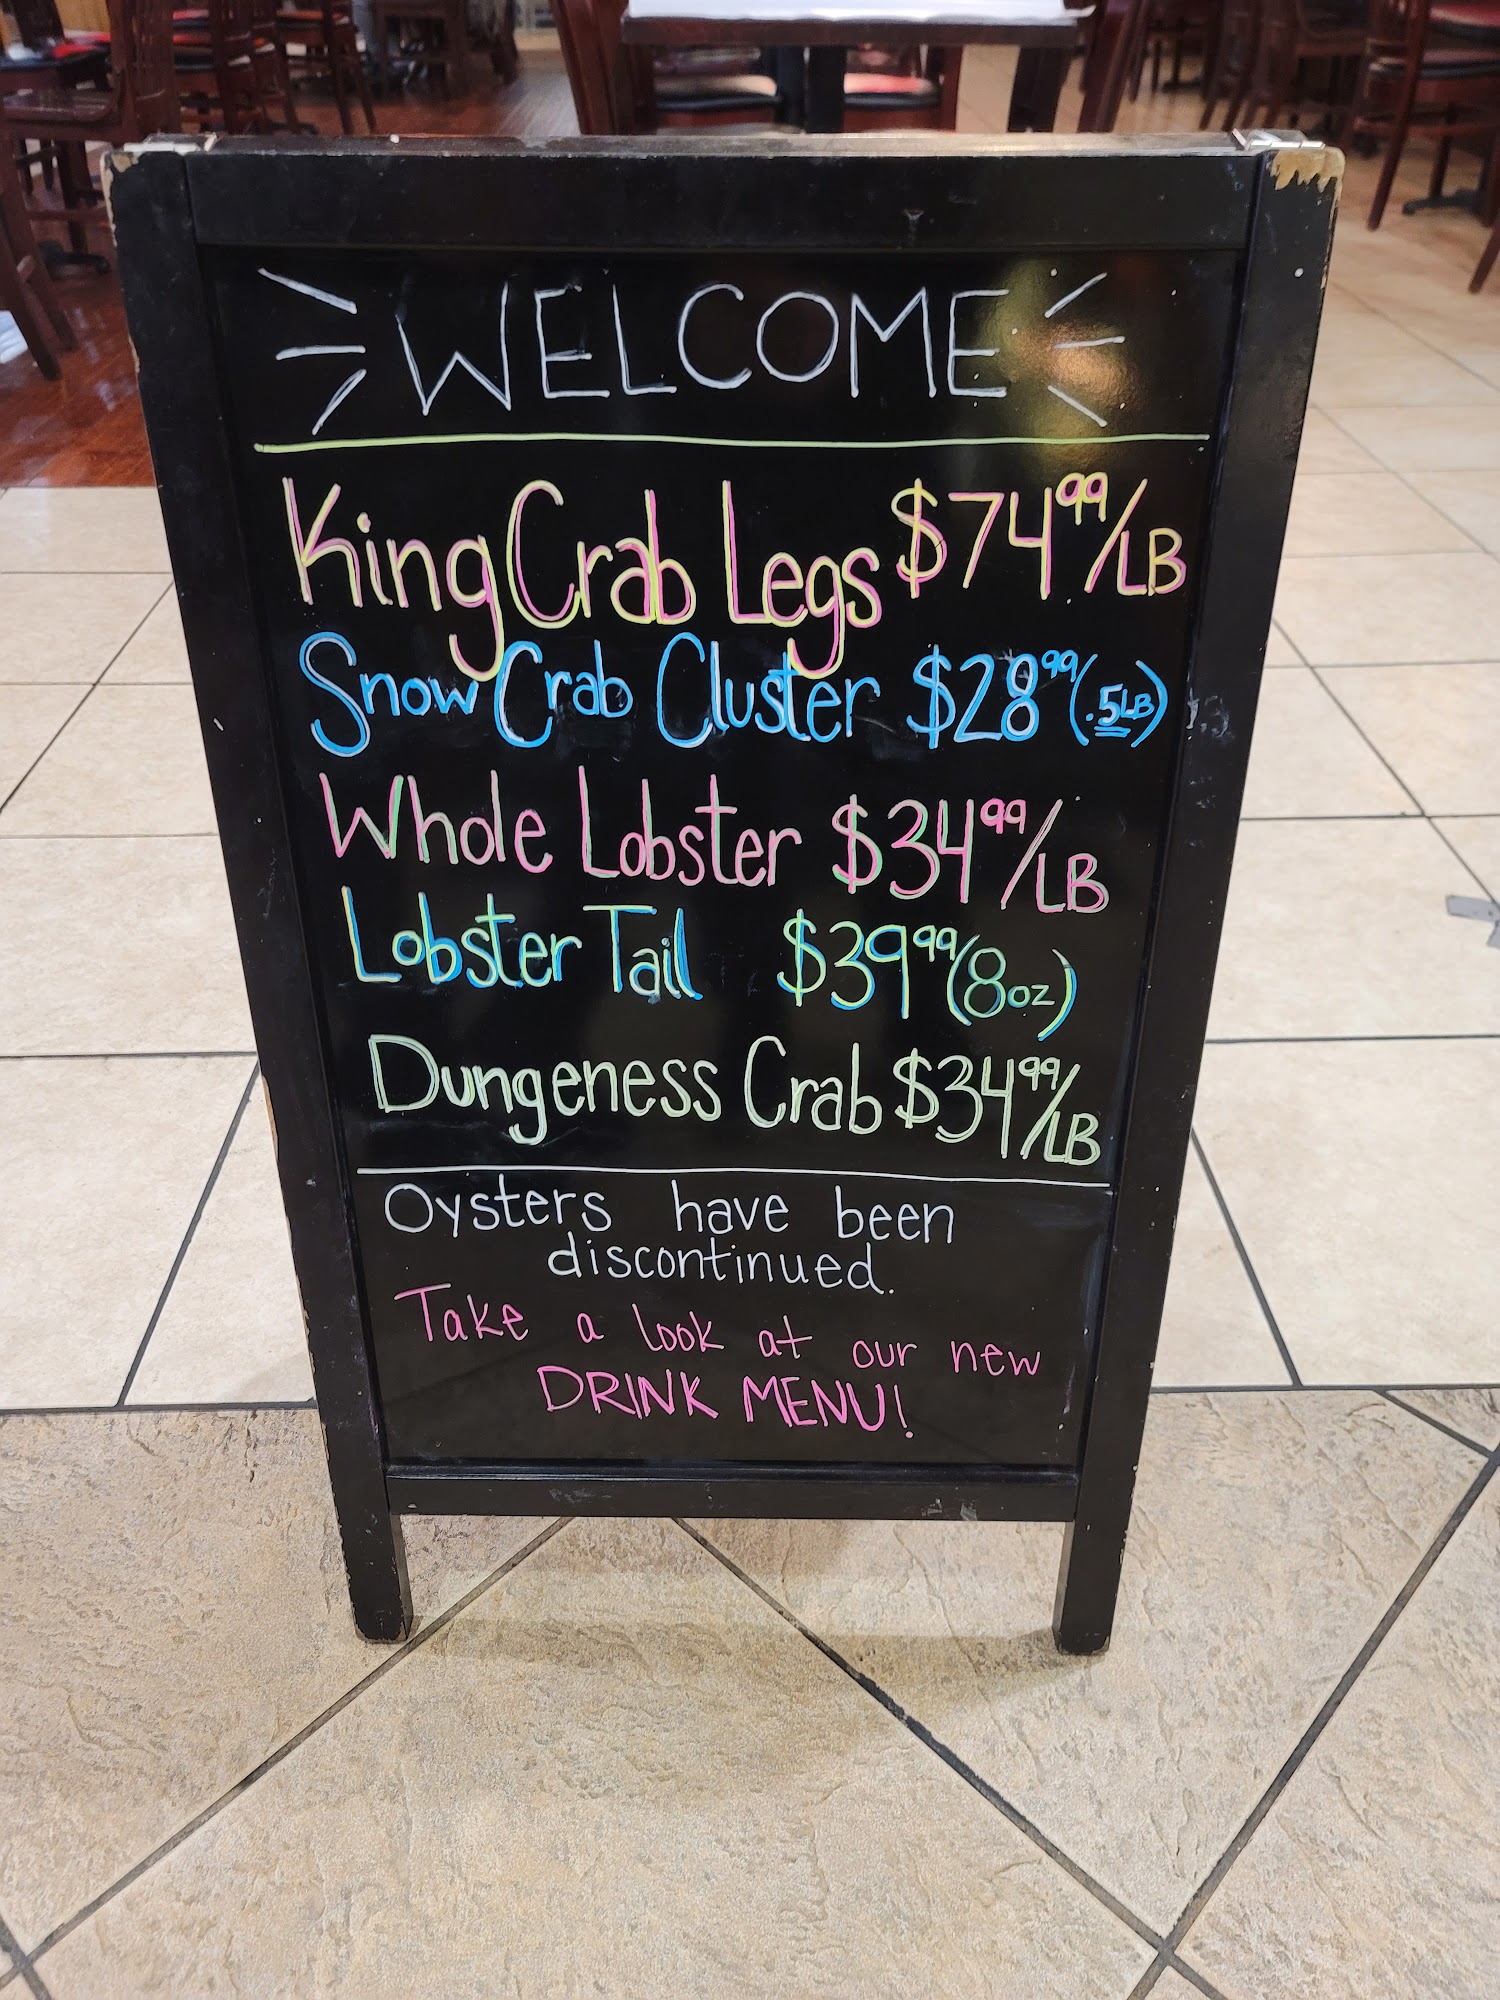 WELCOME
King Crab Legs $74.99/LB
Snow Crab Cluster $28.99 (.5LB)
Whole Lobster $34.99/LB
Lobster Tail $39.99 (8oz)
Dungeness Crab $34.99/LB
Oysters have been
discontinued.
Take a look at our new
DRINK MENU!